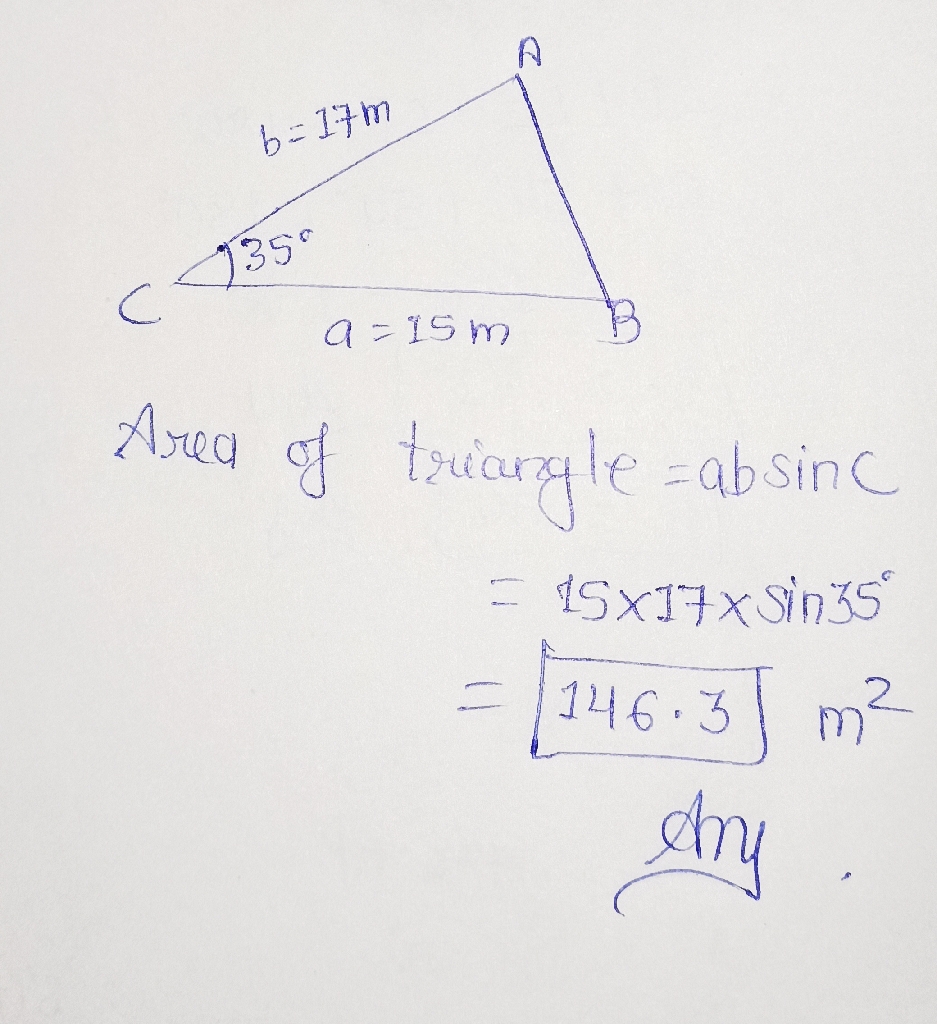 A
b=17m
35°
C
a=15m
B
Area of triangle =absinC
= 15x17xsin35°
= 146.3 m²